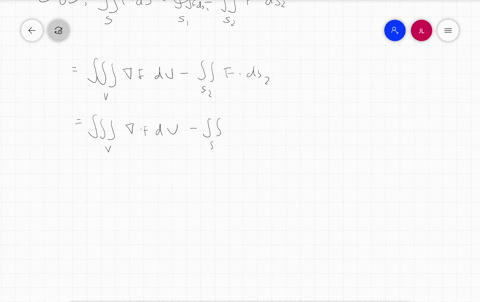 ∬_S F · ds = ∬_{S_1} F · ds_1 − ∬_{S_2} F · ds_2
= ∭_V ∇ F dV − ∬_{S_2} F · ds_2
= ∭_V ∇ · F dV − ∬_S